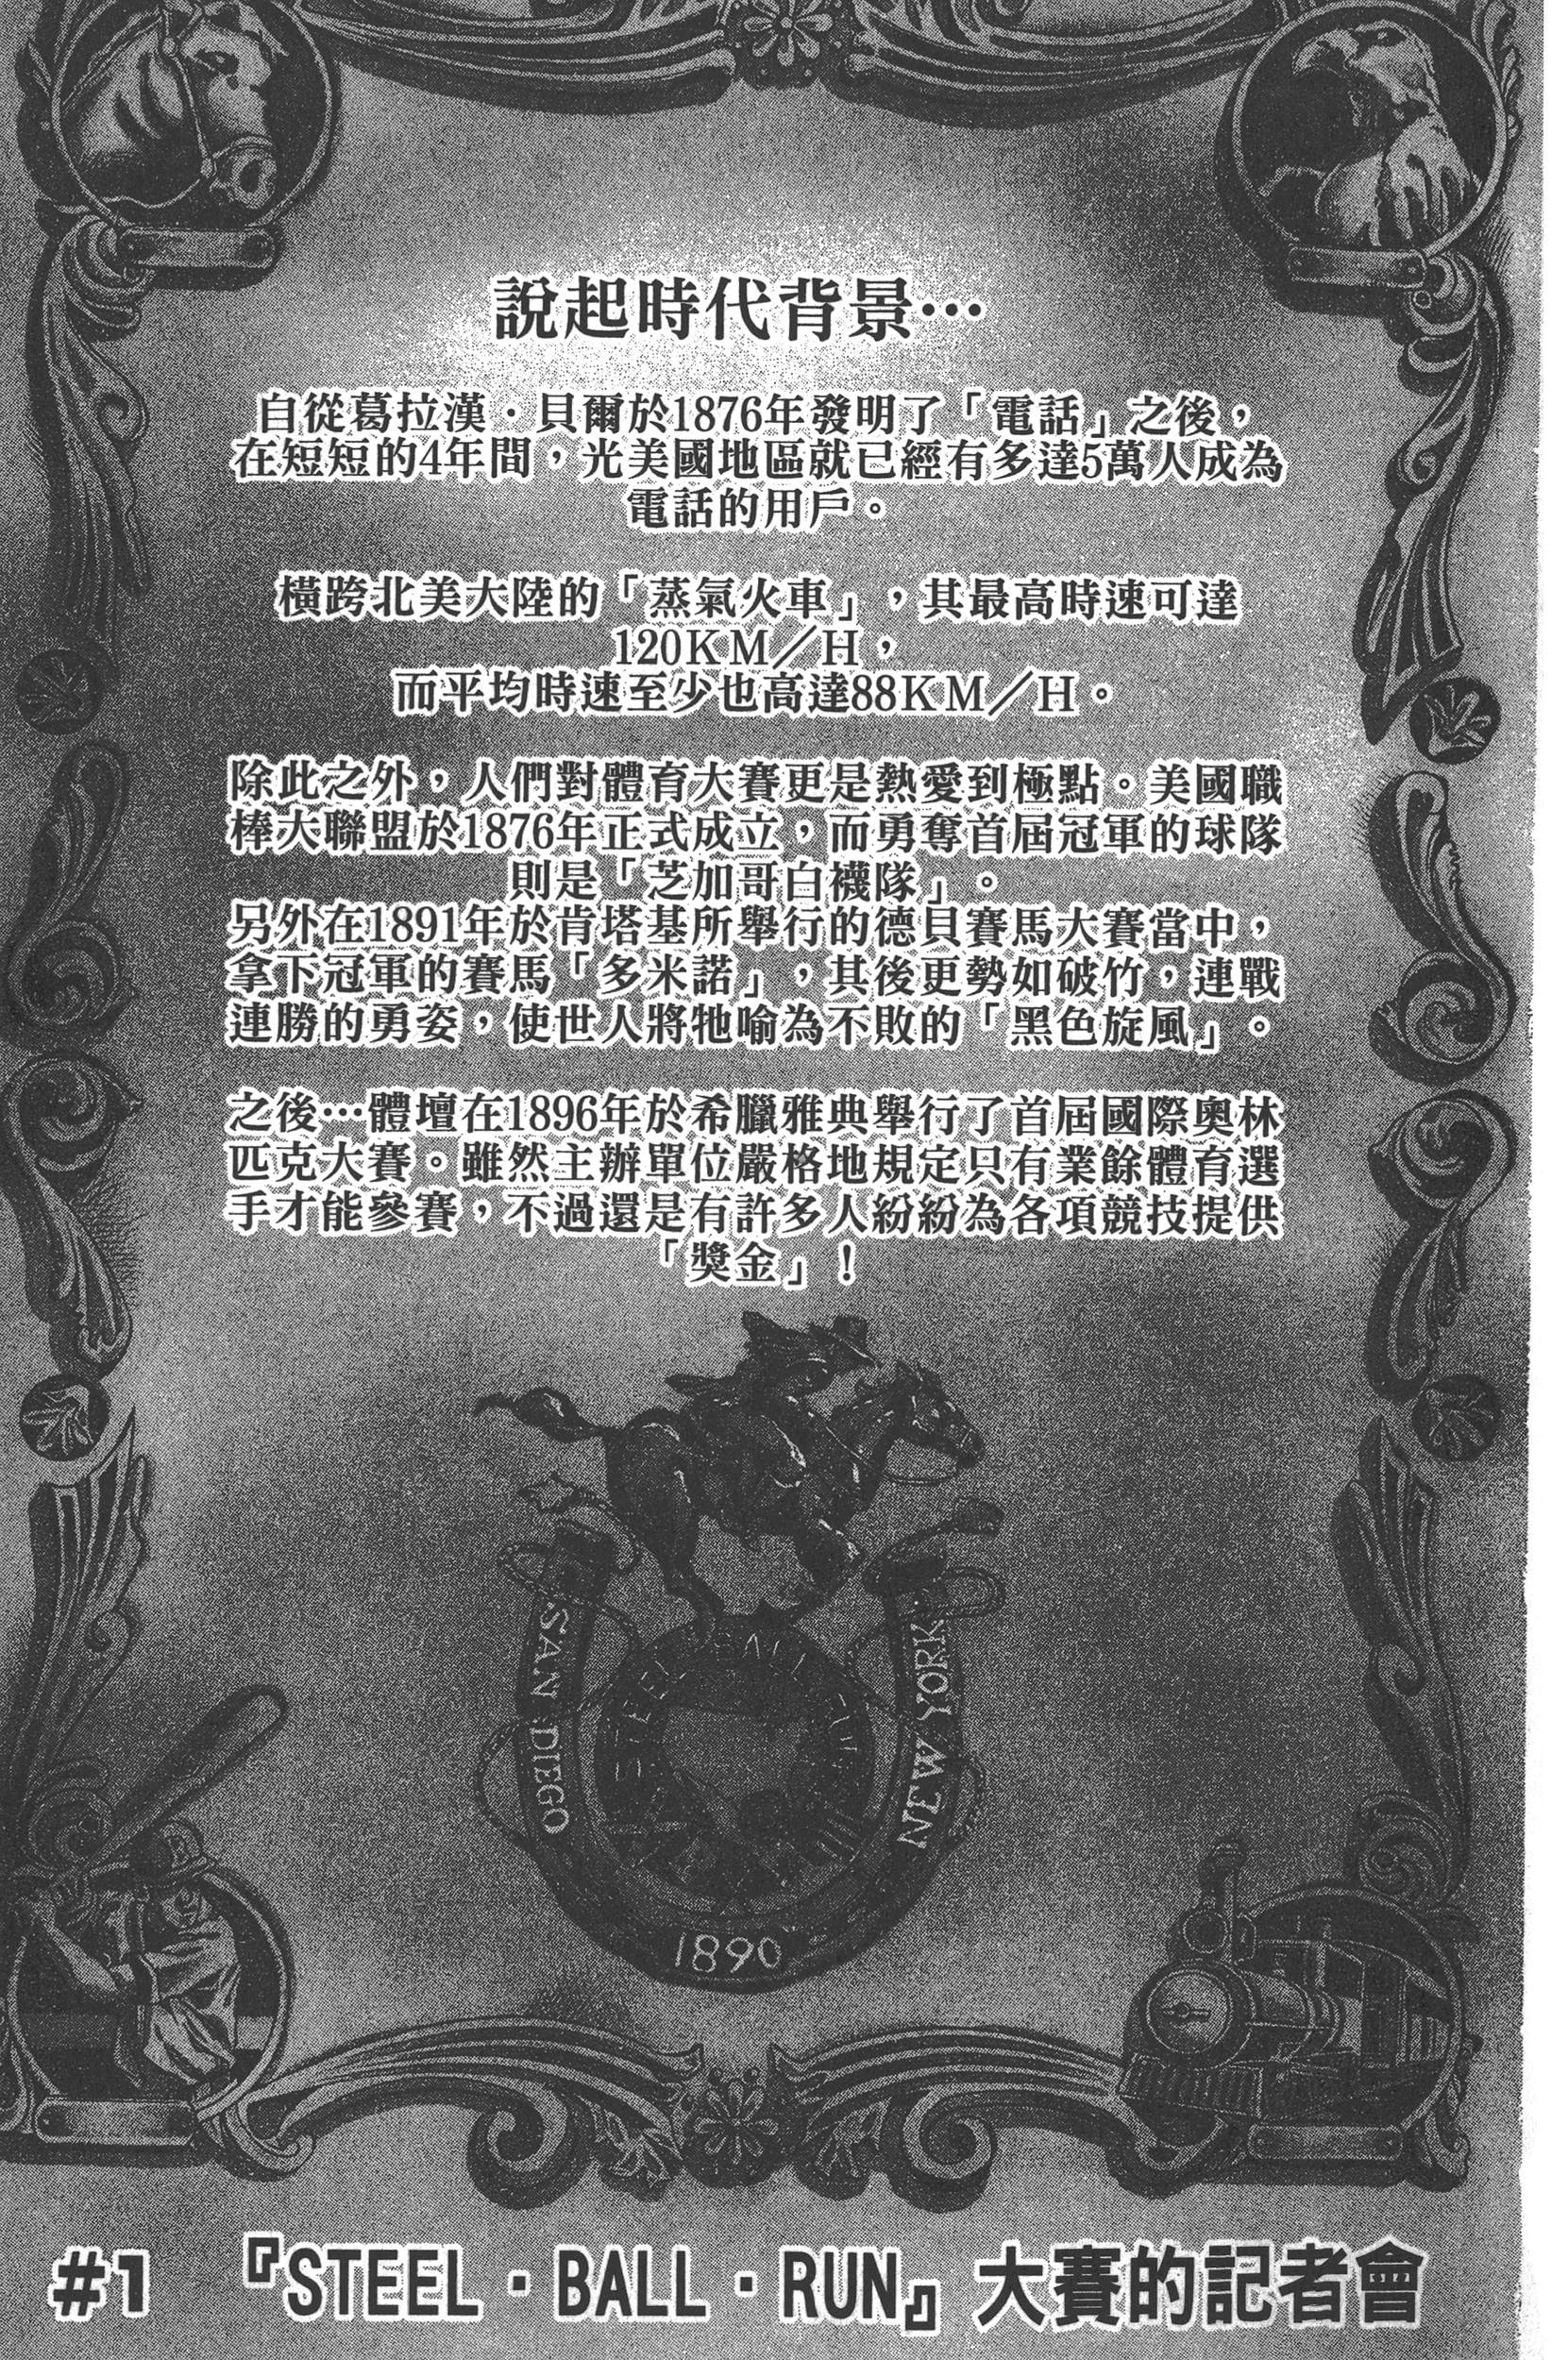 說起時代背景…
自從葛拉漢．貝爾於1876年發明了「電話」之後，
在短短的4年間，光美國地區就已經有多達5萬人成為
電話的用戶。
橫跨北美大陸的「蒸氣火車」，其最高時速可達
120KM／H，
而平均時速至少也高達88KM／H。
除此之外，人們對體育大賽更是熱愛到極點。美國職
棒大聯盟於1876年正式成立，而勇奪首屆冠軍的球隊
則是「芝加哥白襪隊」。
另外在1891年於肯塔基所舉行的德貝賽馬大賽當中，
拿下冠軍的賽馬「多米諾」，其後更勢如破竹，連戰
連勝的勇姿，使世人將牠喻為不敗的「黑色旋風」。
之後…體壇在1896年於希臘雅典舉行了首屆國際奧林
匹克大賽。雖然主辦單位嚴格地規定只有業餘體育選
手才能參賽，不過還是有許多人紛紛為各項競技提供
「獎金」！
SAN DIEGO
NEW YORK
STEEL BALL RUN
1890
#1 『STEEL．BALL．RUN』大賽的記者會